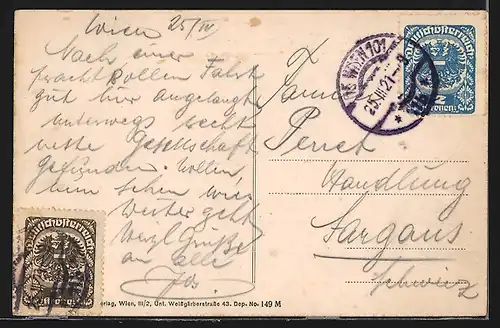 Wien 25/IV
Nach einer
prachtvollen Fahrt
gut hier angelangt
unterwegs recht
nette Gesellschaft
gefunden. Wollen
nun sehen wie
weiter geht
Herzl Grüße
an alle
Jos.
Perret
Handlung
Sargans
Schweiz
WIEN 101
Deutschösterreich
2
Kronen
Deutschösterreich
erlag, Wien, III/2, Unt. Weißgärberstraße 43. Dep. No. 149 M